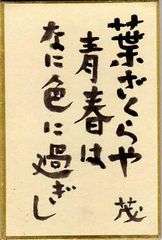 葉ざくらや
青春は
なに色に過ぎし
茂